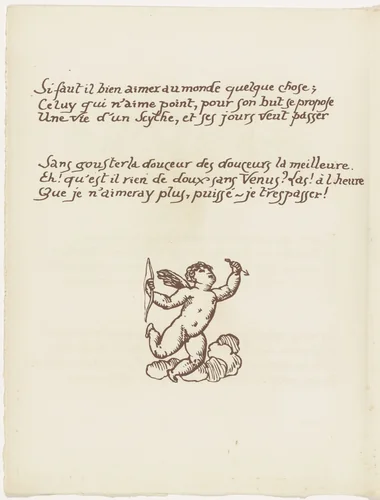 Si faut il bien aimer au monde quelque chose;
Celuy qui n'aime point, pour son but se propose
Une vie d'un Scythe, et ses jours veut passer
Sans gouster la douceur des douceurs la meilleure.
Eh! qu'est il rien de doux sans Venus? Las! à l'heure
Que je n'aimeray plus, puissé-je trespasser!